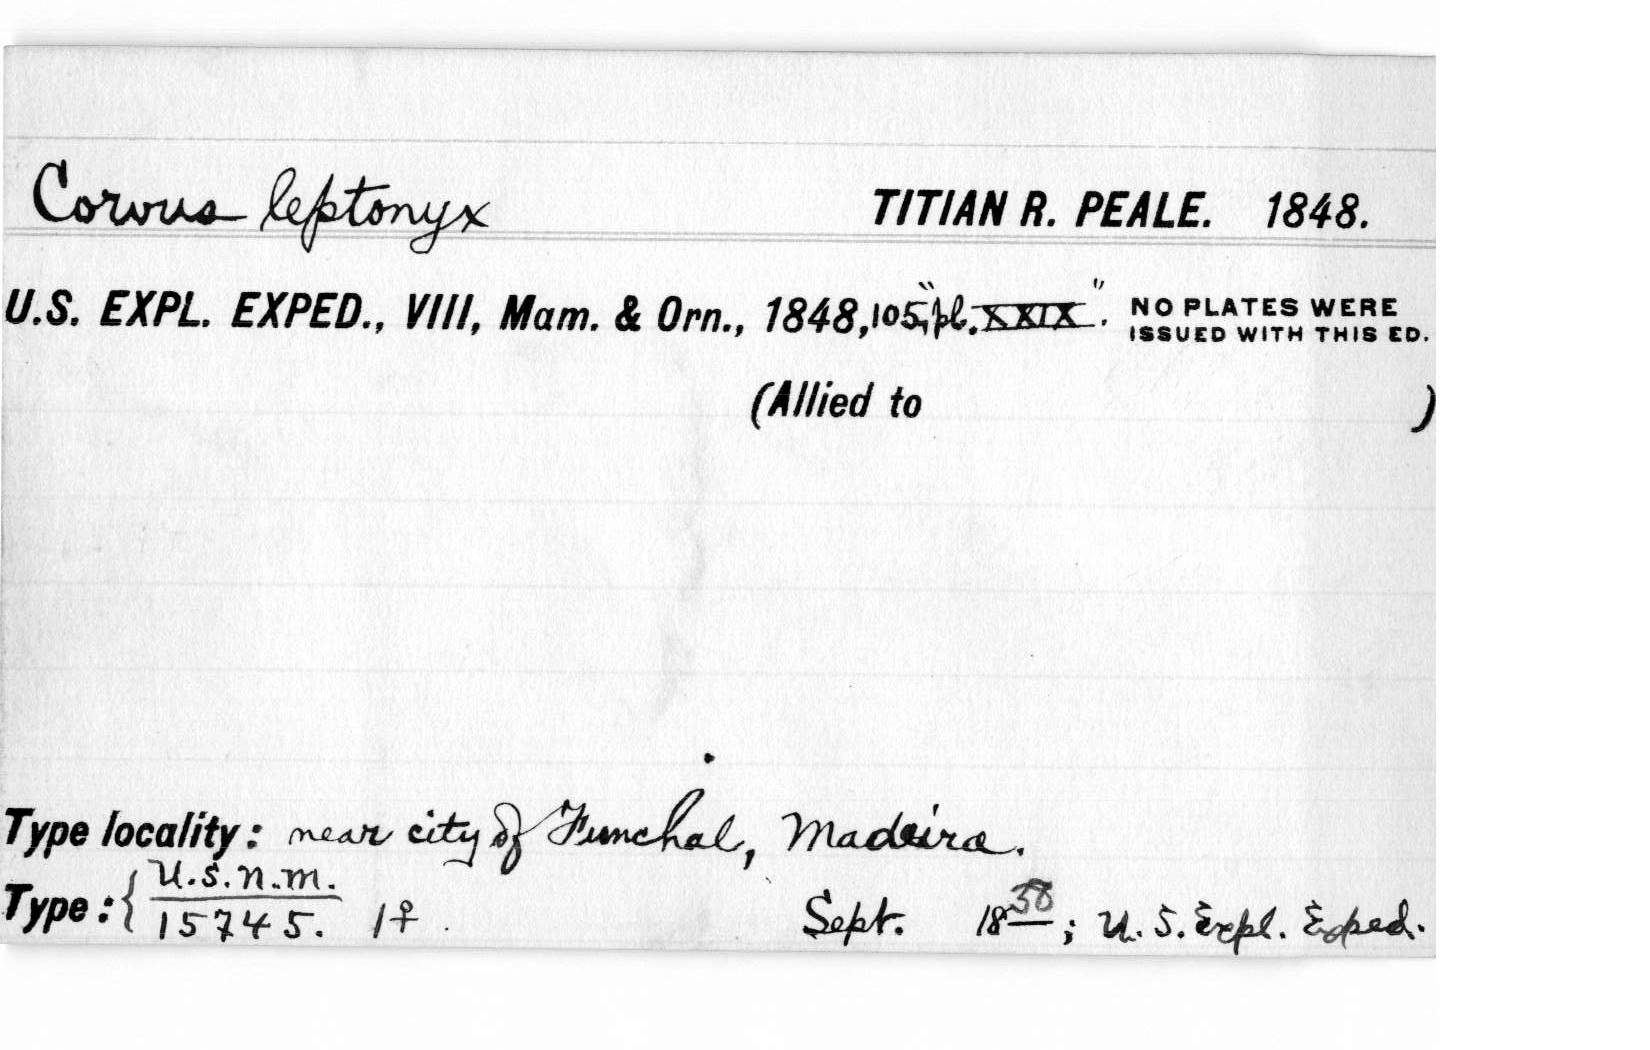 Corvus leptonyx TITIAN R. PEALE. 1848.
U.S. EXPL. EXPED., VIII, Mam. & Orn., 1848, 105, "pl. XXIX". NO PLATES WERE
ISSUED WITH THIS ED.
(Allied to )
Type locality: near city of Funchal, Madeira.
Type: { U.S.N.M.
15745. 1♀. Sept. 1838; U.S. Expl. Exped.